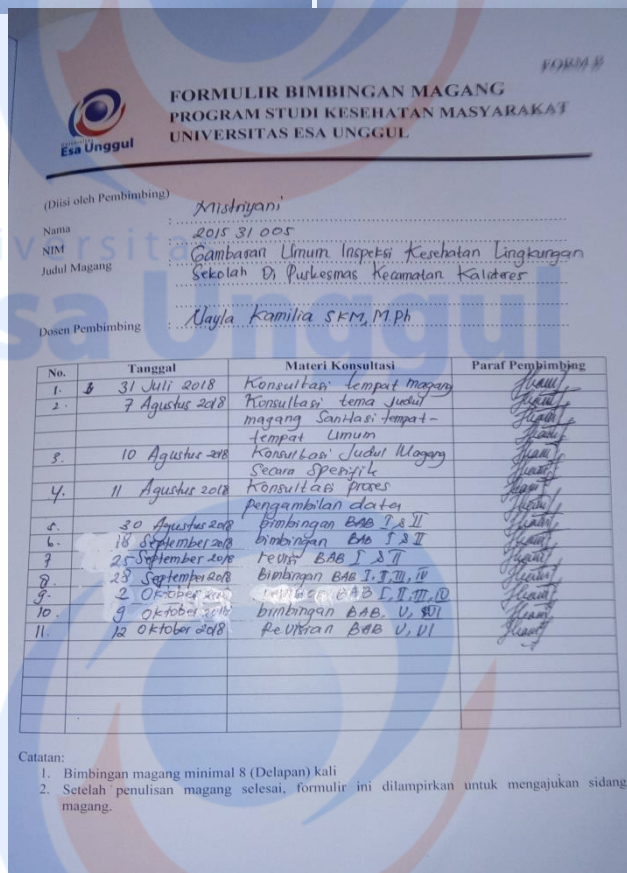 FORM B
FORMULIR BIMBINGAN MAGANG
PROGRAM STUDI KESEHATAN MASYARAKAT
UNIVERSITAS ESA UNGGUL
Esa Unggul
(Diisi oleh Pembimbing)
Nama : Mistriyani
NIM : 2015 31 005
Judul Magang : Gambaran Umum Inspeksi Kesehatan Lingkungan
Sekolah Di Puskesmas Kecamatan Kalideres
Dosen Pembimbing : Nayla Kamilia SKM, MPh
No. Tanggal Materi Konsultasi Paraf Pembimbing
1. 31 Juli 2018 Konsultasi tempat magang
2. 7 Agustus 2018 Konsultasi tema Judul
magang Sanitasi tempat-
tempat Umum
3. 10 Agustus 2018 Konsultasi Judul Magang
Secara Spesifik
4. 11 Agustus 2018 Konsultasi proses
pengambilan data
5. 30 Agustus 2018 bimbingan BAB I & II
6. 18 September 2018 bimbingan BAB I & II
7 25 September 2018 revisi BAB I & II
8. 28 September 2018 bimbingan BAB I, II, III, IV
9. 2 Oktober 2018 BAB I, II, III, IV
10. 9 Oktober 2018 bimbingan BAB, V, VI
11. 12 Oktober 2018 BAB V, VI
Catatan:
1. Bimbingan magang minimal 8 (Delapan) kali
2. Setelah penulisan magang selesai, formulir ini dilampirkan untuk mengajukan sidang
magang.